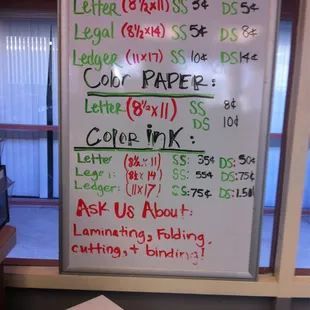 Letter (8½x11) SS 3¢ DS 5¢
Legal (8½x14) SS 5¢ DS 8¢
Ledger (11x17) SS 10¢ DS 14¢
Color PAPER:
Letter (8½x11) SS 8¢
DS 10¢
Color ink:
Letter (8½ x 11) SS: 35¢ DS: 50¢
Legal: (8½ x 14) SS: 55¢ DS: 75¢
Ledger: (11x17) SS: 75¢ DS: 1.50
Ask Us About:
Laminating, Folding,
cutting, + binding!